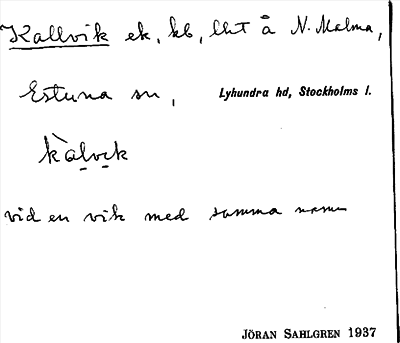 Kallvik ek, kb, lht å N. Malma,
Estuna sn, Lyhundra hd, Stockholms l.
kàlvik
vid en vik med samma namn
JÖRAN SAHLGREN 1937